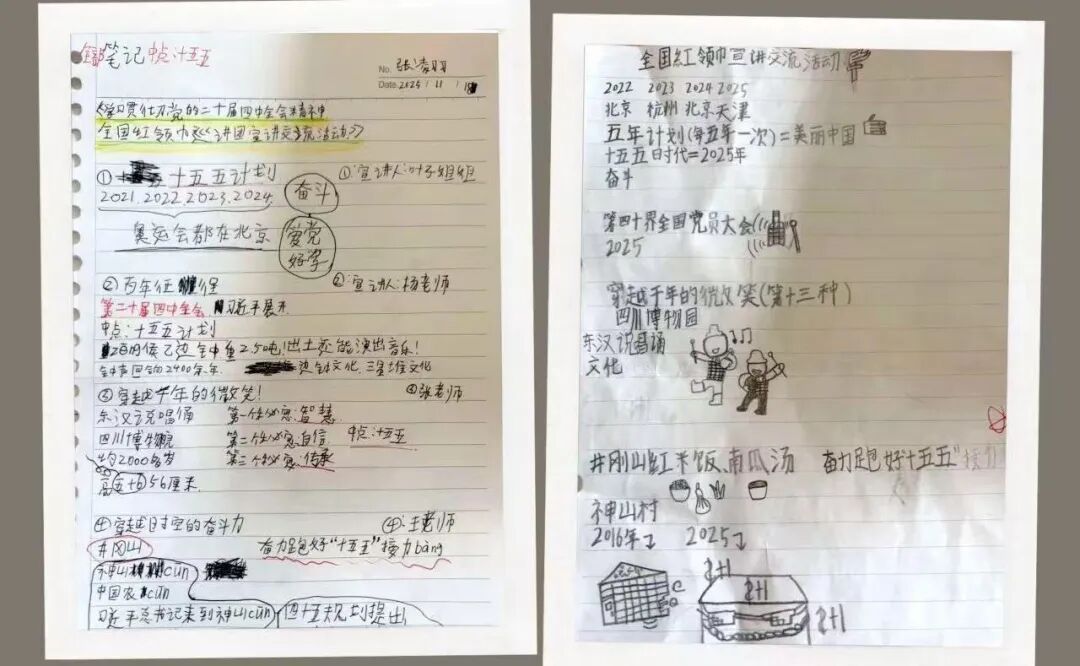 笔记 中点:十五五
No. 张凌羽
Date 2025 / 11 /
学习贯彻党的二十届四中全会精神
全国红领巾 讲团宣讲交流活动》
① 十五五计划 ①:宣讲人:叶子姐姐
2021.2022.2023.2024. 奋斗
奥运会都在北京 爱党好学
②百年征 程 ②:宣讲人:杨老师
第二十届四中全会 习近平展示
中点:十五五计划
文化
③穿越千年的微笑! ④张老师
东汉说唱俑 第一个秘密:智慧
四川博物院 第二个秘密:自信 中点:十五五
约2000多岁 第三个秘密:传承
高 56厘米.
④穿越时空的奋斗力 ④:王老师
井冈山 奋力跑好"十五五"接力bàng
神山 cūn
中国农 cūn
习近平总书记来到神山cūn 四十五规划提出
全国红领巾宣讲交流活动
2022 2023 2024 2025
北京 杭州 北京天津
五年计划(每五年一次)=美丽中国
十五五时代=2025年
奋斗
第四十界全国党员大会
2025
穿越千年的微笑(第十三种)
四川博物园
东汉说唱诵
文化
井刚山红米饭、南瓜汤 奋力跑好"十五五"接力
神山村
2016年 2025